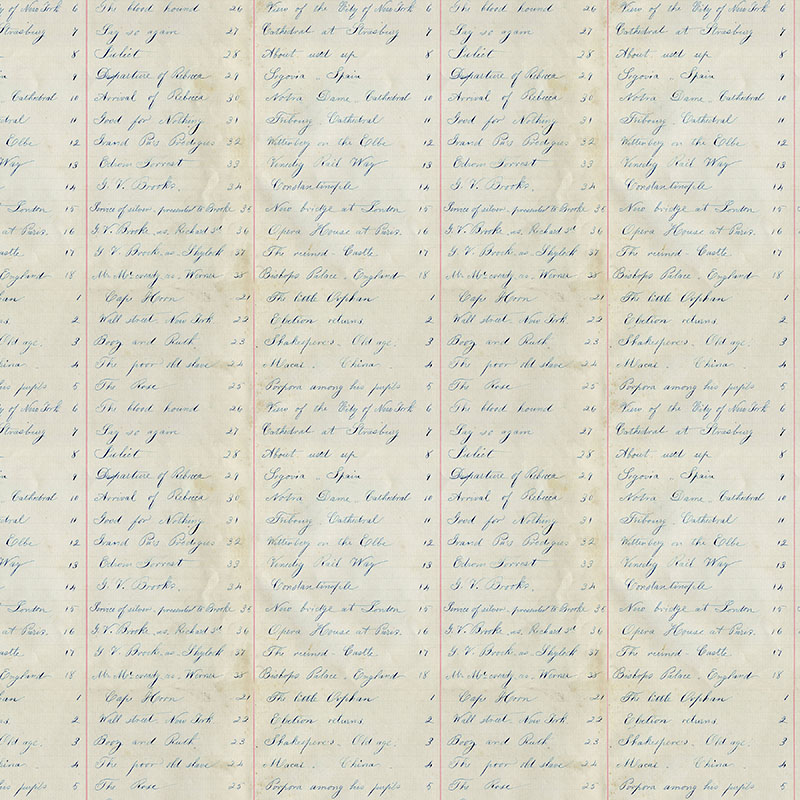 y of New York 6 The blood hound 26 View of the City of New York 6 The blood hound 26 View of the City of New York 6
Strasburg 7 Say so again 27 Cathedral at Strasburg 7 Say so again 27 Cathedral at Strasburg 7
8 Juliet 28 About used up 8 Juliet 28 About used up 8
9 Departure of Rebecca 29 Segovia Spain 9 Departure of Rebecca 29 Segovia Spain 9
Cathedral 10 Arrival of Rebecca 30 Notra Dame Cathedral 10 Arrival of Rebecca 30 Notra Dame Cathedral 10
dral 11 Good for Nothing 31 Fribourg Cathedral 11 Good for Nothing 31 Fribourg Cathedral 11
Elbe 12 Grand Pa's Prodigies 32 Wittenberg on the Elbe 12 Grand Pa's Prodigies 32 Wittenberg on the Elbe 12
Way 13 Edwin Forrest 33 Rail Way 13 Edwin Forrest 33 Rail Way 13
14 G. V. Brooke. 34 Constantinople 14 G. V. Brooke. 34 Constantinople 14
at London 15 Service of silver, presented to Brooke 36 New bridge at London 15 Service of silver, presented to Brooke 36 New bridge at London 15
at Paris. 16 G. V. Brooke, as, Richard 3d 36 Opera House at Paris. 16 G. V. Brooke, as, Richard 3d 36 Opera House at Paris. 16
tle 17 G. V. Brooke, as Shylock 37 The ruined Castle 17 G. V. Brooke, as Shylock 37 The ruined Castle 17
England 18 as, Werner 38 Bishops Palace, England 18 as, Werner 38 Bishops Palace, England 18
han 1 Cape Horn 21 The little Orphan 1 Cape Horn 21 The little Orphan 1
s 2 Wall street, New York 22 Election returns 2 Wall street, New York 22 Election returns 2
Old age. 3 Booz and Ruth 23 Shakesperes, Old age. 3 Booz and Ruth 23 Shakesperes, Old age. 3
hina 4 The poor old slave 24 Macai, China 4 The poor old slave 24 Macai, China 4
his pupils 5 The Rose 25 Porpora among his pupils 5 The Rose 25 Porpora among his pupils 5
y of New York 6 The blood hound 26 View of the City of New York 6 The blood hound 26 View of the City of New York 6
Strasburg 7 Say so again 27 Cathedral at Strasburg 7 Say so again 27 Cathedral at Strasburg 7
8 Juliet 28 About used up 8 Juliet 28 About used up 8
9 Departure of Rebecca 29 Segovia Spain 9 Departure of Rebecca 29 Segovia Spain 9
Cathedral 10 Arrival of Rebecca 30 Notra Dame Cathedral 10 Arrival of Rebecca 30 Notra Dame Cathedral 10
dral 11 Good for Nothing 31 Fribourg Cathedral 11 Good for Nothing 31 Fribourg Cathedral 11
Elbe 12 Grand Pa's Prodigies 32 Wittenberg on the Elbe 12 Grand Pa's Prodigies 32 Wittenberg on the Elbe 12
Way 13 Edwin Forrest 33 Rail Way 13 Edwin Forrest 33 Rail Way 13
14 G. V. Brooke. 34 Constantinople 14 G. V. Brooke. 34 Constantinople 14
at London 15 Service of silver, presented to Brooke 36 New bridge at London 15 Service of silver, presented to Brooke 36 New bridge at London 15
at Paris. 16 G. V. Brooke, as, Richard 3d 36 Opera House at Paris. 16 G. V. Brooke, as, Richard 3d 36 Opera House at Paris. 16
tle 17 G. V. Brooke, as Shylock 37 The ruined Castle 17 G. V. Brooke, as Shylock 37 The ruined Castle 17
England 18 as, Werner 38 Bishops Palace, England 18 as, Werner 38 Bishops Palace, England 18
han 1 Cape Horn 21 The little Orphan 1 Cape Horn 21 The little Orphan 1
s 2 Wall street, New York 22 Election returns 2 Wall street, New York 22 Election returns 2
Old age. 3 Booz and Ruth 23 Shakesperes, Old age. 3 Booz and Ruth 23 Shakesperes, Old age. 3
hina 4 The poor old slave 24 Macai, China 4 The poor old slave 24 Macai, China 4
his pupils 5 The Rose 25 Porpora among his pupils 5 The Rose 25 Porpora among his pupils 5